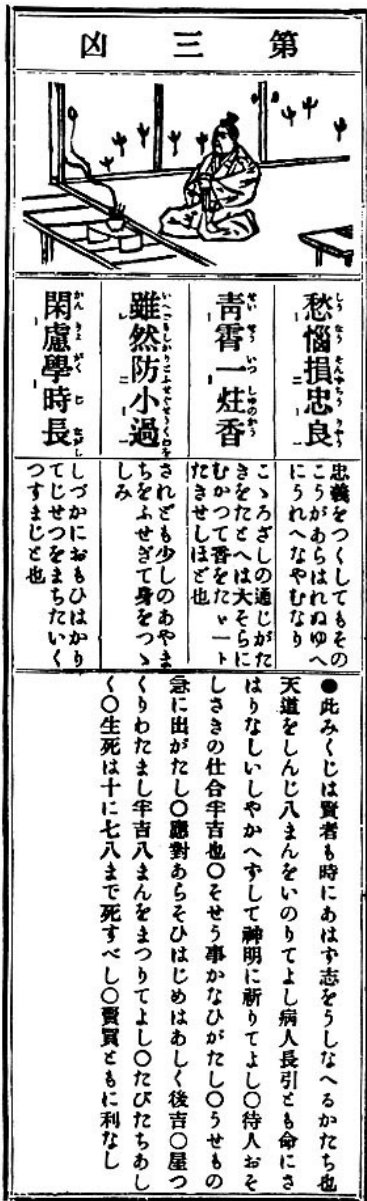 第三凶
愁惱損忠良
青霄一炷香
雖然防小過
閑慮學時長
忠義をつくしてもその
こうがあらはれぬゆへ
にうれへなやむなり
こゝろざしの通じがた
きをたとへは大そらに
むかつて香をたゞ一ト
たきせしほど也
されども少しのあやま
ちをふせぎて身をつゝ
しみ
しづかにおもひはかり
てじせつをまちたいく
つすまじと也
●此みくじは賢者も時にあはず志をうしなへるかたち也
天道をしんじ八まんをいのりてよし病人長引とも命にさ
はりなしいしやかへずして神明に祈りてよし○待人おそ
しさきの仕合半吉也○そせう事かなひがたし○うせもの
急に出がたし○應對あらそひはじめはあしく後吉○屋つ
くりわたまし半吉八まんをまつりてよし○たびたちあし
く○生死は十に七八まで死すべし○賣買ともに利なし